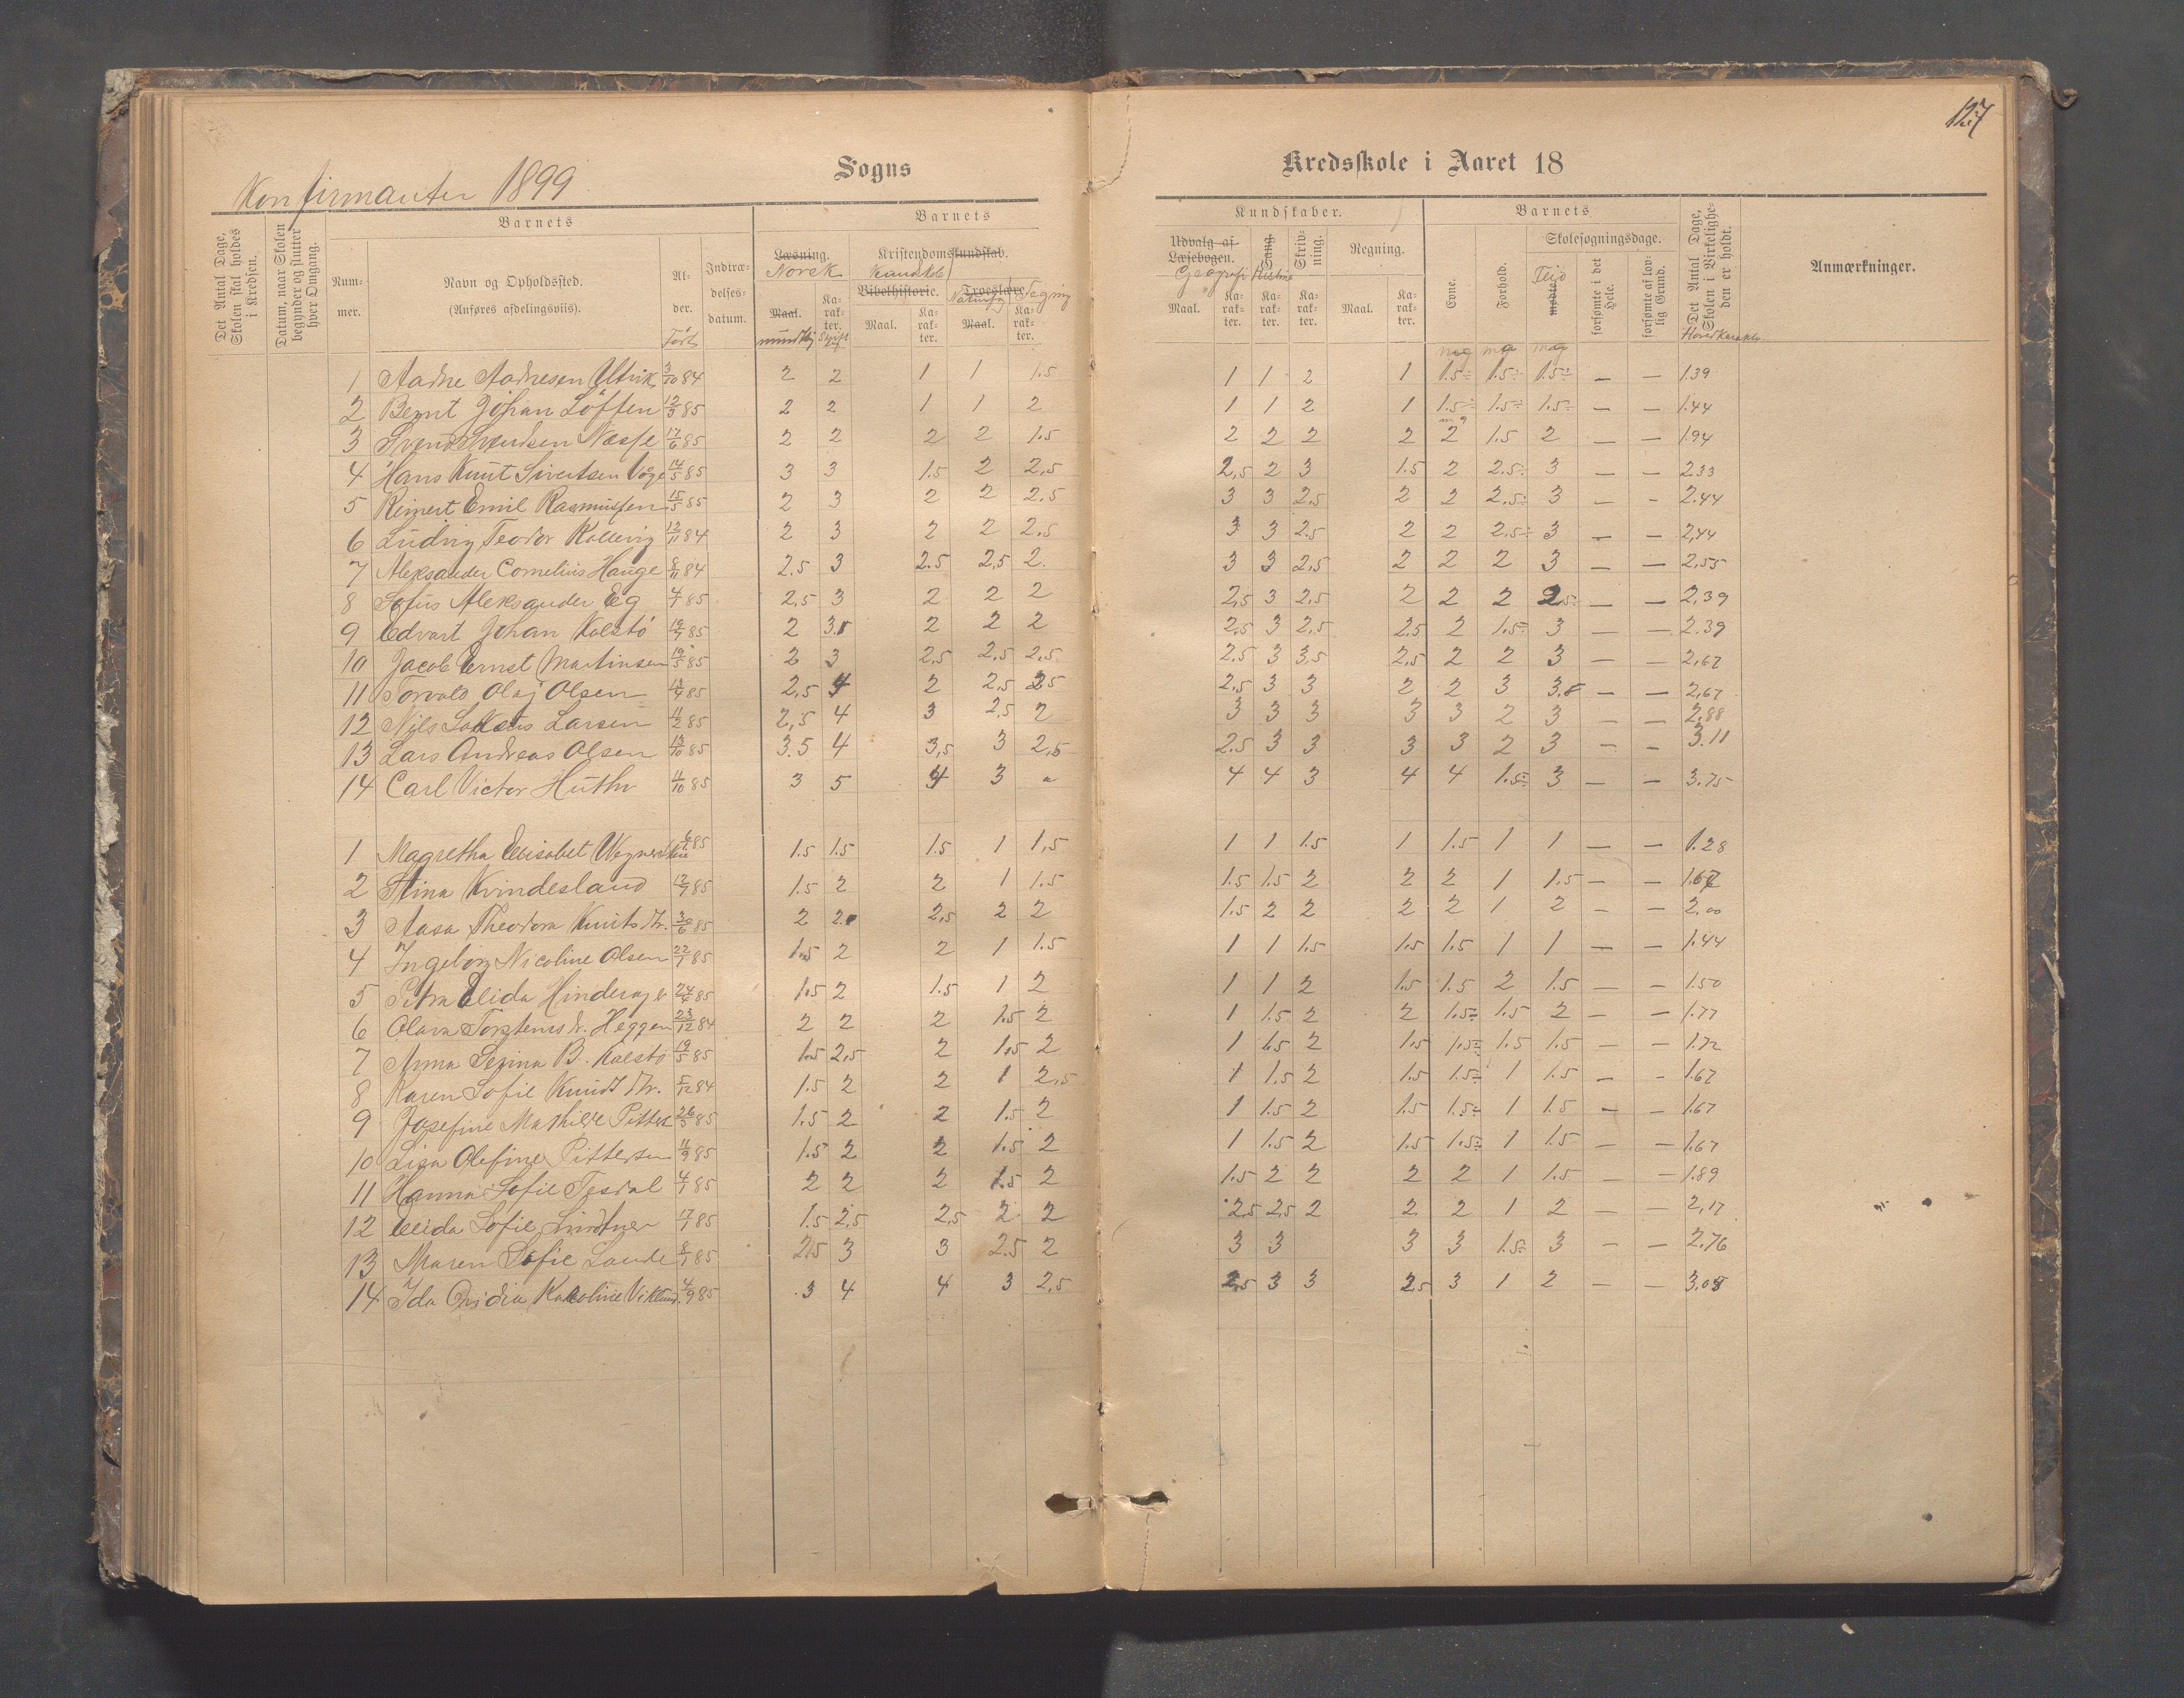 127
Konfirmanter 1899
Sogns
Kredsskole i Aaret 18
Det Antal Dage, Skolen skal holdes i Kredsen.
Datum, naar Skolen begynder og slutter hver Omgang.
Barnets
Nummer.
Navn og Opholdssted.
(Anføres afdelingsviis).
Alder.
Født
Indtrædelsesdatum.
Barnets
Læsning.
Norsk
Kristendomskundskab.
Kundskb
Bibelhistorie.
Troeslære
Naturfg
Tegning
Maal.
mundtlig
Karakter.
Skriftl
Maal.
Karakter.
Maal.
Karakter.
Kundskaber.
Udvalg af Læsebogen.
Geografi
Sang.
Historie
Skrivning.
Regning.
Maal.
Karakter.
Karakter.
Karakter.
Maal.
Karakter.
Barnets
Evne.
Forhold.
Skolesøgningsdage.
mødte.
Flid
forsømte i det Hele.
forsømte af lovlig Grund.
Det Antal Dage, Skolen i Virkeligheden er holdt.
Hovedkarakter.
Anmærkninger.
mg mg mg
1 Aadne Aadnesen Utvik 3/10 84 2 2 1 1 1.5 1 1 2 1 1.5÷ 1.5÷ 1.5÷ — — 1.39
2 Bernt Johan Løften 12/3 85 2 2 1 1 2 1 1 2 1 1.5÷ 1.5÷ 1.5÷ — — 1.44
mg
3 Svend Svendsen Næsse 17/6 85 2 2 2 2 1.5 2 2 2 2 2 1.5 2 — — 1.94
4 Hans Knut Sivertsen Våge 14/5 85 3 3 1.5 2 2,5 2,5 2 3 1.5 2 2.5÷ 3 — — 2.33
5 Reinert Emil Rasmussen 15/5 85 2 3 2 2 2.5 3 3 2,5 2 2 2.5÷ 3 — - 2.44
6 Ludvig Teodor Kallevig 12/11 84 2 3 2 2 2.5 3 3 2.5 2 2 2.5÷ 3 — — 2,44
7 Aleksander Cornelius Hauge 8/11 84 2.5 3 2.5 2,5 2. 3 3 2,5 2 2 2 3 — — 2,55
8 Sofus Aleksander Eg 4/1 85 2,5 3 2 2 2 2,5 3 2,5 2 2 2 2.5÷ — — 2,39
9 Edvart Johan Kalstø 16/7 85 2 3. 2 2 2 2,5 3 2,5 2,5 2 1.5÷ 3 — — 2.39
10 Jacob Ernst Martinsen 19/5 85 2 3 2,5 2,5 2,5 2,5 3 3,5 2,5 2 2 3 — — 2,67
11 Torvald Olaj Olsen 13/4 85 2,5 4 2 2,5 2,5 2,5 3 3 2 2 3 3. — — 2,67
12 Nils Larsen 11/2 85 2,5 4 3 2,5 2 3 3 3 3 3 2 3 — — 2,88
13 Lars Andreas Olsen 13/10 85 3.5 4 3,5 3 2,5 2.5 3 3 3 3 2 3 — — 3.11
14 Carl Victor Huthr 4/10 85 3 5 4 3 4 4 3 4 4 1.5÷ 3 — — 3.75
1 Magretha Elisabet Wegner 6/ 85 1.5 1.5 1.5 1 1,5 1 1 1.5 1 1.5 1 1 — — 1.28
2 Stina Kvindesland 12/7 85 1.5 2 2 1 1.5 1.5 1.5 2 2 2 1 1.5 — — 1.67
3 Aasa Theodora Knuts dtr. 30/6 85 2 2. 2,5 2 2 1.5 2 2 2 2 1 2 — — 2,00
4 Ingeborg Nicoline Olsen 22/1 85 1.5 2 2 1 1.5 1 1 1.5 1.5 1.5 1 1 — — 1.44
5 Petra Elida Hinderager 24/ 85 1.5 2 1.5 1 2 1 1 2 1.5 1.5 2 1.5 — — 1.50
6 Olava Torstens d. Heggen 23/12 84 2 2 2 1.5 2 1 1.5 2 2 1.5÷ 1.5 2 — — 1.77
7 Anna Serina B. Kalstø 19/5 85 1.5 2,5 2 1.5 2 1 1.5 2 1.5 1.5÷ 1.5 1.5 — — 1.72
8 Karen Sofie Knudsdtr. 5/12 84 1.5 2 2 1 2,5 1 1.5 2 1.5 1.5÷ 1 1.5 — - 1.67
9 Josefine Mathilde Pitters 26/5 85 1.5 2 2 1.5 2 1 1.5 2 1.5 1.5÷ 1 1.5 — — 1.67
10 Lisa Olefine Pittersen 11/9 85 1.5 2 2 1.5 2 1 1.5 2 1.5 1.5÷ 1 1.5 — — 1.67
11 Hanna Sofie Tesdal 4/1 85 2 2 2 1.5 2 1.5 2 2 2 2 1 1.5 — 1.89
12 Elida Sofie Lindtner 17/7 85 1.5 2,5 2,5 2 2 2,5 2,5 2 2 2 1 2 — — 2,17
13 Maren Sofie Lande 8/1 85 2,5 3 3 2.5 2 3 3 3 3 1.5÷ 3 — — 2.76
14 Ida Ovidia Karoline Viklund. 4/9 85 3 4 4 3 2,5 2,5 3 3 2,5 3 1 2 — — 3.05